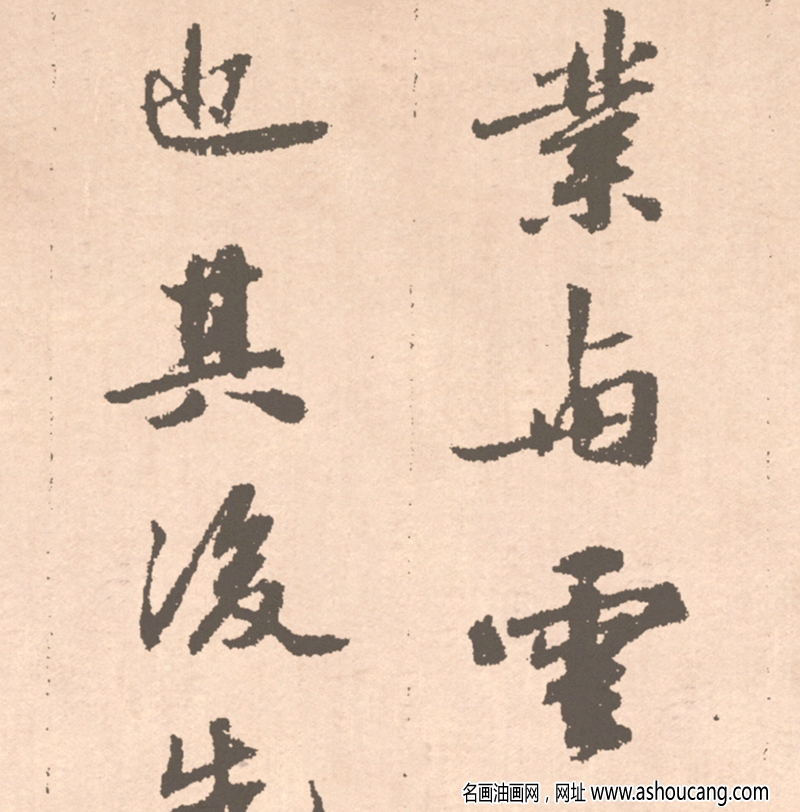 業与
也其後
名画油画网，网址 www.ashoucang.com